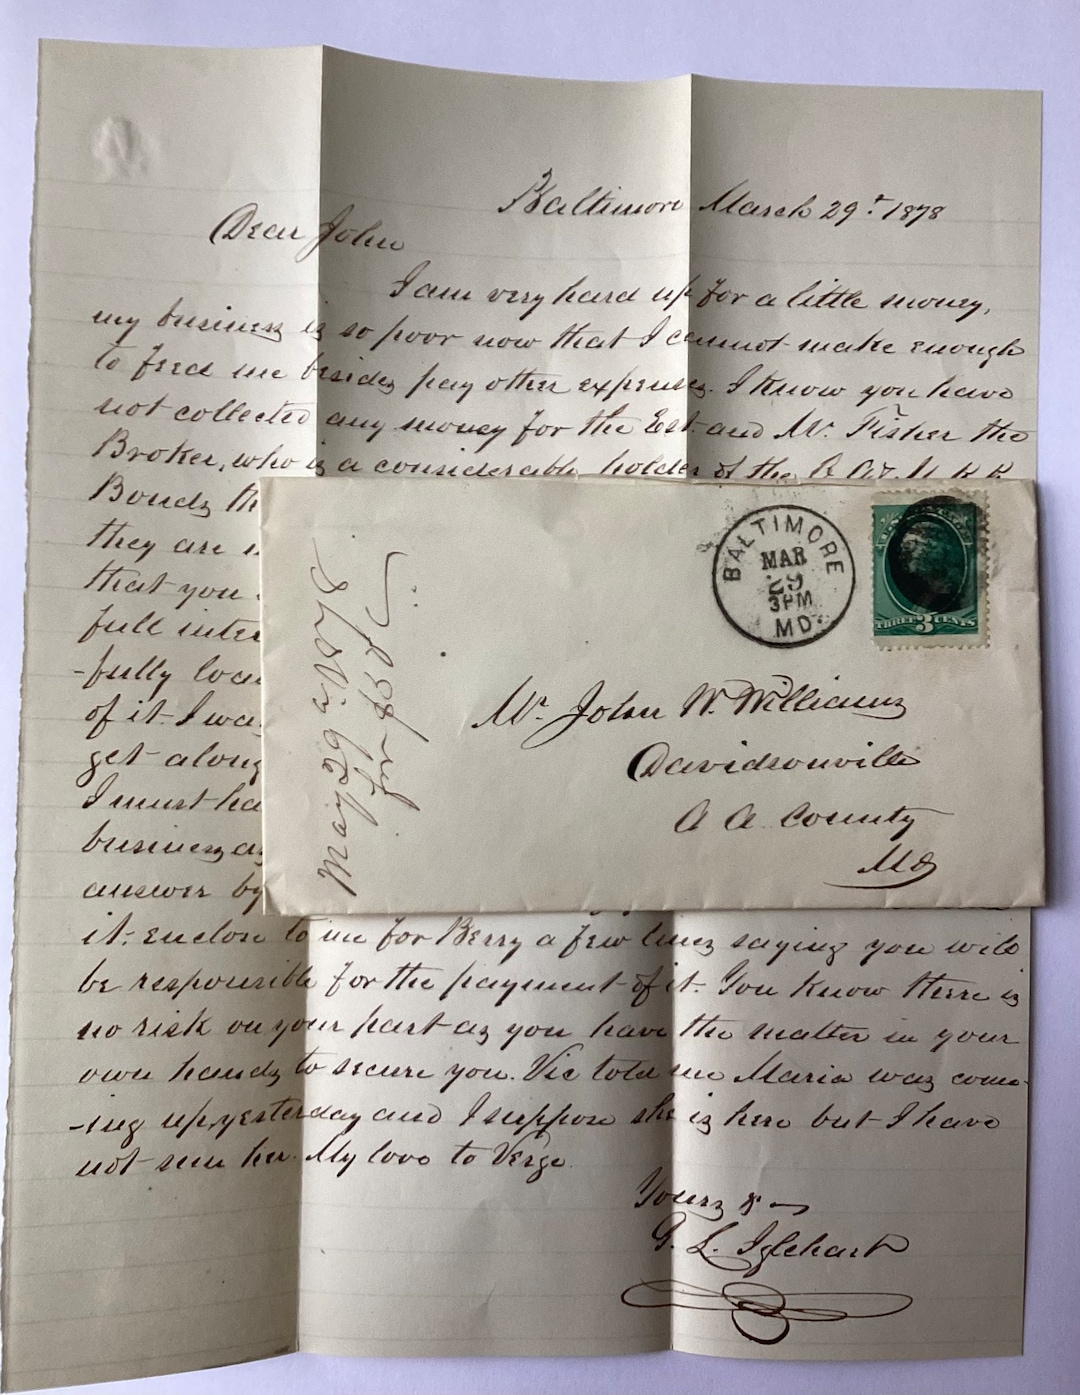 Baltimore March 29th 1878
Dear John
I am very hard up for a little money,
my business is so poor now that I cannot make enough
to feed me besides pay other expenses. I know you have
not collected any money for the Est. and Mr. Fisher the
Broker, who is a considerable holder of the R R
Bonds th
they are
that you
full inter
-fully loca
of it. I wa
get along
I must ha
business as
answer by
it. enclose to me for Berry a few lines saying you will
be responsible for the payment of it. You know there is
no risk on your part as you have the matter in your
own hands to secure you. Vic told me Maria was com-
-ing up yesterday and I suppose she is here but I have
not seen her. My love to Verge.
Yours &
G. L. Iglehart
BALTIMORE
MAR
29
3PM
MD.
THREE 3 CENTS
Mr. John W. Williams
Davidsonville
A A County
Md
May 29 1878
for